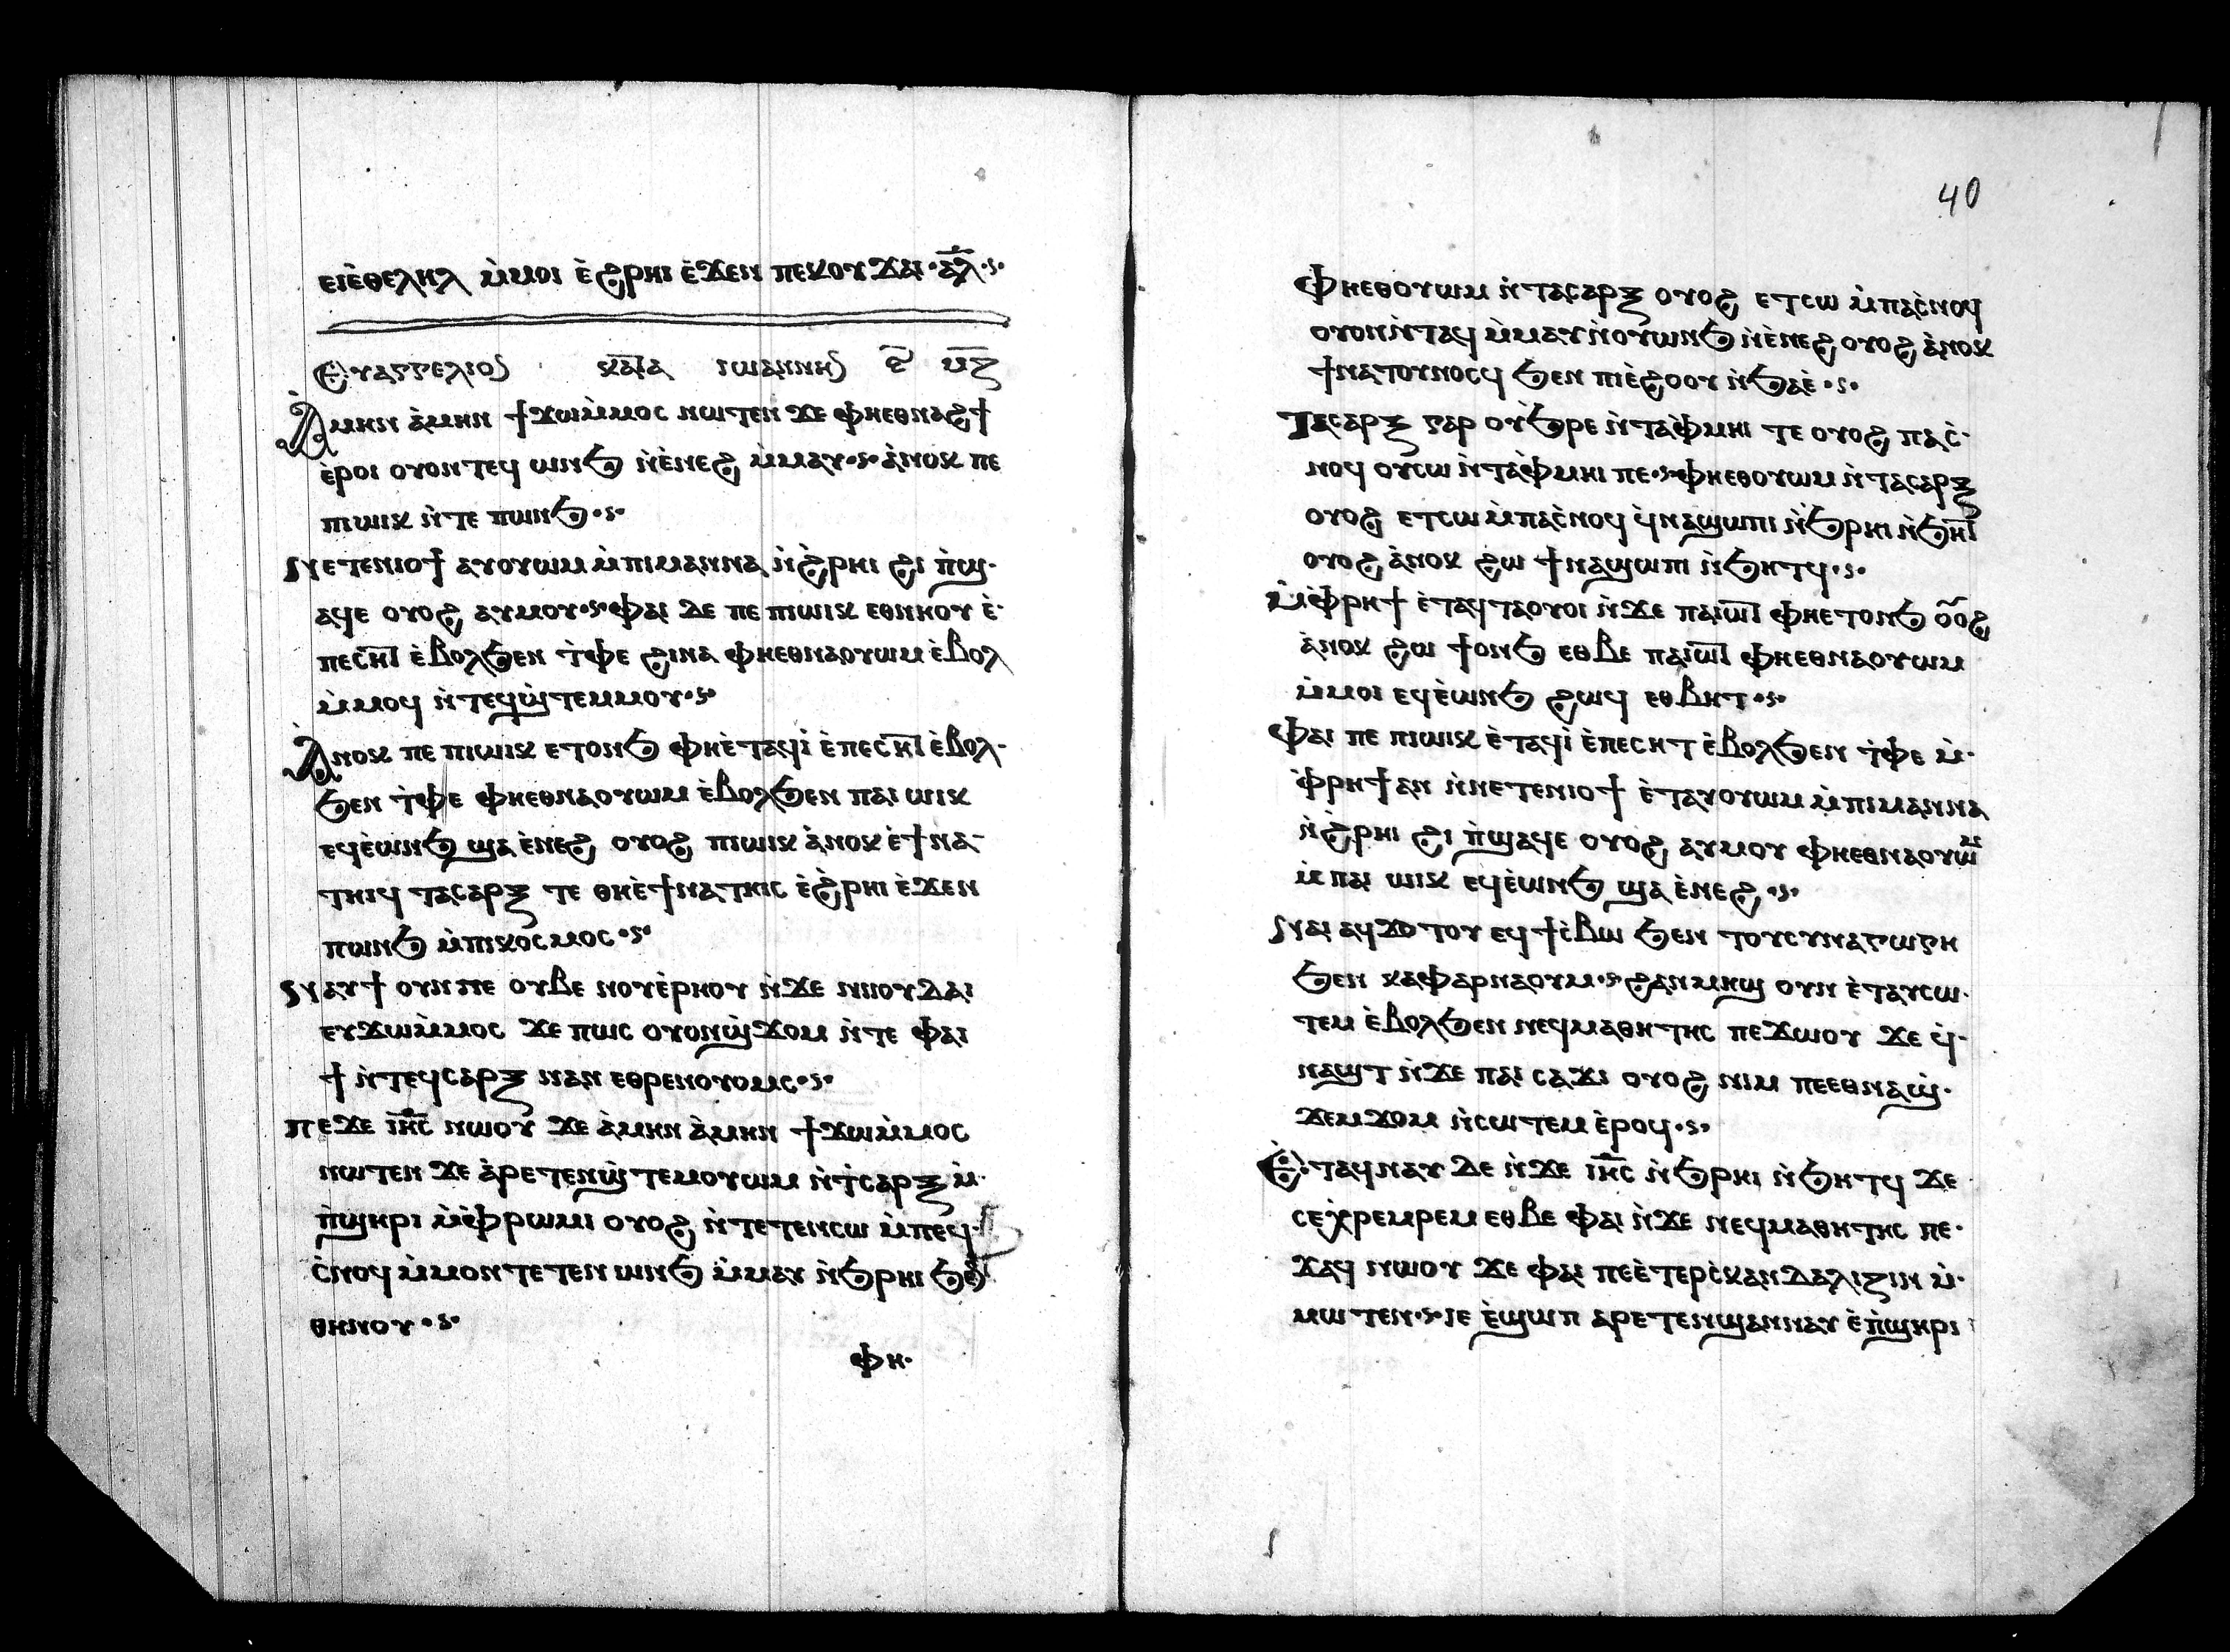 ⲉⲓⲉ̀ⲑⲉⲗⲏⲗ ⲙ̀ⲙⲟⲓ ⲉ̀ϩⲣⲏⲓ ⲉ̀ϫⲉⲛ ⲡⲉⲕⲟⲩϫⲁⲓ· ⲁ̅ⲗ̅·ⲋ·
Ⲉⲩⲁⲅⲅⲉⲗⲓⲟⲛ ⲕⲁⲧⲁ ⲓⲱⲁⲛⲛⲏⲛ ⲋ̅ ⲙ̅ⲍ̅
Ⲁ̀ⲙⲏⲛ ⲁ̀ⲙⲏⲛ ϯϫⲱⲙ̀ⲙⲟⲥ ⲛⲱⲧⲉⲛ ϫⲉ ⲫⲏⲉⲑⲛⲁϩϯ
ⲉ̀ⲣⲟⲓ ⲟⲩⲟⲛⲧⲉϥ ⲱⲛϧ ⲛ̀ⲉ̀ⲛⲉϩ ⲙ̀ⲙⲁⲩ·ⲋ· ⲁ̀ⲛⲟⲕ ⲡⲉ
ⲡⲓⲱⲓⲕ ⲛ̀ⲧⲉ ⲡⲱⲛϧ·ⲋ·
Ⲛⲉⲧⲉⲛⲓⲟϯ ⲁⲩⲟⲩⲱⲙ ⲙ̀ⲡⲓⲙⲁⲛⲛⲁ ⲛ̀ϩ̀ⲣⲏⲓ ϩⲓ ⲡ̀ϣ·
ⲁϥⲉ ⲟⲩⲟϩ ⲁⲩⲙⲟⲩ·ⲋ· ⲫⲁⲓ ⲇⲉ ⲡⲉ ⲡⲓⲱⲓⲕ ⲉⲑⲛⲏⲟⲩ ⲉ̀·
ⲡⲉⲥⲏⲧ ⲉ̀ⲃⲟⲗϧⲉⲛ ⲧ̀ⲫⲉ ϩⲓⲛⲁ ⲫⲏⲉⲑⲛⲁⲟⲩⲱⲙ ⲉ̀ⲃⲟⲗ
ⲙ̀ⲙⲟϥ ⲛ̀ⲧⲉϥϣ̀ⲧⲉⲙⲙⲟⲩ·ⲋ·
Ⲁ̀ⲛⲟⲕ ⲡⲉ ⲡⲓⲱⲓⲕ ⲉⲧⲟⲛϧ ⲫⲏⲉ̀ⲧⲁϥⲓ̀ ⲉ̀ⲡⲉⲥⲏⲧ ⲉ̀ⲃⲟⲗ·
ϧⲉⲛ ⲧ̀ⲫⲉ ⲫⲏⲉⲑⲛⲁⲟⲩⲱⲙ ⲉ̀ⲃⲟⲗϧⲉⲛ ⲡⲁⲓ ⲱⲓⲕ
ⲉϥⲉ̀ⲱⲛϧ ϣⲁ ⲉ̀ⲛⲉϩ ⲟⲩⲟϩ ⲡⲓⲱⲓⲕ ⲁ̀ⲛⲟⲕ ⲉ̀ϯⲛⲁ-
ⲧⲏⲓϥ ⲧⲁⲥⲁⲣⲝ ⲧⲉ ⲑⲏⲉ̀ϯⲛⲁⲧⲏⲓⲥ ⲉ̀ϩ̀ⲣⲏⲓ ⲉ̀ϫⲉⲛ
ⲡⲱⲛϧ ⲙ̀ⲡⲓⲕⲟⲥⲙⲟⲥ·ⲋ·
Ⲛⲁⲩϯ ⲟⲩⲛ ⲡⲉ ⲟⲩⲃⲉ ⲛⲟⲩⲉ̀ⲣⲏⲟⲩ ⲛ̀ϫⲉ ⲛⲓⲓⲟⲩⲇⲁⲓ
ⲉⲩϫⲱⲙ̀ⲙⲟⲥ ϫⲉ ⲡⲱⲥ ⲟⲩⲟⲛϣ̀ϫⲟⲙ ⲛ̀ⲧⲉ ⲫⲁⲓ
ϯ ⲛ̀ⲧⲉϥⲥⲁⲣⲝ ⲛⲁⲛ ⲉⲑⲣⲉⲛⲟⲩⲟⲙⲥ·ⲋ·
Ⲡⲉϫⲉ ⲓⲏ̅ⲥ̅ ⲛⲱⲟⲩ ϫⲉ ⲁ̀ⲙⲏⲛ ⲁ̀ⲙⲏⲛ ϯϫⲱⲙ̀ⲙⲟⲥ
ⲛⲱⲧⲉⲛ ϫⲉ ⲁ̀ⲣⲉⲧⲉⲛϣ̀ⲧⲉⲙⲟⲩⲱⲙ ⲛ̀ⲧ̀ⲥⲁⲣⲝ ⲙ̀·
ⲡ̀ϣⲏⲣⲓ ⲙ̀ⲫ̀ⲣⲱⲙⲓ ⲟⲩⲟϩ ⲛ̀ⲧⲉⲧⲉⲛⲥⲱ ⲙ̀ⲡⲉϥ·
ⲥ̀ⲛⲟϥ ⲙ̀ⲙⲟⲛⲧⲉⲧⲉⲛ ⲱⲛϧ ⲙ̀ⲙⲁⲩ ⲛ̀ϧⲣⲏⲓ ϧⲉⲛ
ⲑⲏⲛⲟⲩ·ⲋ·
ⲫⲏ·
40
Ⲫⲏⲉⲑⲟⲩⲱⲙ ⲛ̀ⲧⲁⲥⲁⲣⲝ ⲟⲩⲟϩ ⲉⲧⲥⲱ ⲙ̀ⲡⲁⲥ̀ⲛⲟϥ
ⲟⲩⲟⲛⲛ̀ⲧⲁϥ ⲙ̀ⲙⲁⲩ ⲛ̀ⲟⲩⲱⲛϧ ⲛ̀ⲉ̀ⲛⲉϩ ⲟⲩⲟϩ ⲁ̀ⲛⲟⲕ
ϯⲛⲁⲧⲟⲩⲛⲟⲥϥ ϧⲉⲛ ⲡⲓⲉ̀ϩⲟⲟⲩ ⲛ̀ϧⲁⲉ̀·ⲋ·
Ⲧⲁⲥⲁⲣⲝ ⲅⲁⲣ ⲟⲩϧ̀ⲣⲉ ⲛ̀ⲧⲁⲫ̀ⲙⲏⲓ ⲧⲉ ⲟⲩⲟϩ ⲡⲁⲥ̀·
ⲛⲟϥ ⲟⲩⲥⲱ ⲛ̀ⲧⲁⲫ̀ⲙⲏⲓ ⲡⲉ·ⲋ· ⲫⲏⲉⲑⲟⲩⲱⲙ ⲛ̀ⲧⲁⲥⲁⲣⲝ
ⲟⲩⲟϩ ⲉⲧⲥⲱ ⲙ̀ⲡⲁⲥ̀ⲛⲟϥ ϥ̀ⲛⲁϣⲱⲡⲓ ⲛ̀ϧ̀ⲣⲏⲓ ⲛ̀ϧⲏⲧ
ⲟⲩⲟϩ ⲁ̀ⲛⲟⲕ ϩⲱ ϯⲛⲁϣⲱⲡⲓ ⲛ̀ϧⲏⲧϥ·ⲋ·
Ⲙ̀ⲫ̀ⲣⲏϯ ⲉ̀ⲧⲁϥⲧⲁⲟⲩⲟⲓ ⲛ̀ϫⲉ ⲡⲁⲓⲱⲧ ⲫⲏⲉⲧⲟⲛϧ ⲟⲟϩ
ⲁ̀ⲛⲟⲕ ϩⲱ ϯⲟⲛϧ ⲉⲑⲃⲉ ⲡⲁⲓⲱⲧ ⲫⲏⲉⲑⲛⲁⲟⲩⲱⲙ
ⲙ̀ⲙⲟⲓ ⲉϥⲉ̀ⲱⲛϧ ϩⲱϥ ⲉⲑⲃⲏⲧ·ⲋ·
Ⲫⲁⲓ ⲡⲉ ⲡⲓⲱⲓⲕ ⲉ̀ⲧⲁϥⲓ̀ ⲉ̀ⲡⲉⲥⲏⲧ ⲉ̀ⲃⲟⲗϧⲉⲛ ⲧ̀ⲫⲉ ⲙ̀·
ⲫ̀ⲣⲏϯ ⲁⲛ ⲛ̀ⲛⲉⲧⲉⲛⲓⲟϯ ⲉ̀ⲧⲁⲩⲟⲩⲱⲙ ⲙ̀ⲡⲓⲙⲁⲛⲛⲁ
ⲛ̀ϩ̀ⲣⲏⲓ ϩⲓ ⲡ̀ϣⲁϥⲉ ⲟⲩⲟϩ ⲁⲩⲙⲟⲩ ⲫⲏⲉⲑⲛⲁⲟⲩⲱⲙ
ⲙ̀ⲡⲁⲓ ⲱⲓⲕ ⲉϥⲉ̀ⲱⲛϧ ϣⲁ ⲉ̀ⲛⲉϩ·ⲋ·
Ⲛⲁⲓ ⲁϥϫⲟⲧⲟⲩ ⲉϥϯⲥ̀ⲃⲱ ϧⲉⲛ ⲧⲟⲩⲥⲩⲛⲁⲅⲱⲅⲏ
ϧⲉⲛ ⲕⲁⲫⲁⲣⲛⲁⲟⲩⲙ·ⲋ· ϩⲁⲛⲙⲏϣ ⲟⲩⲛ ⲉ̀ⲧⲁⲩⲥⲱ·
ⲧⲉⲙ ⲉ̀ⲃⲟⲗϧⲉⲛ ⲛⲉϥⲙⲁⲑⲏⲧⲏⲥ ⲡⲉϫⲱⲟⲩ ϫⲉ ϥ̀·
ⲛⲁϣⲧ ⲛ̀ϫⲉ ⲡⲁⲓ ⲥⲁϫⲓ ⲟⲩⲟϩ ⲛⲓⲙ ⲡⲉⲉⲑⲛⲁϣ̀·
ϫⲉⲙϫⲟⲙ ⲛ̀ⲥⲱⲧⲉⲙ ⲉ̀ⲣⲟϥ·ⲋ·
Ⲉ̀ⲧⲁϥⲛⲁⲩ ⲇⲉ ⲛ̀ϫⲉ ⲓⲏ̅ⲥ̅ ⲛ̀ϧⲣⲏⲓ ⲛ̀ϧⲏⲧϥ ϫⲉ
ⲥⲉⲭ̀ⲣⲉⲙⲣⲉⲙ ⲉⲑⲃⲉ ⲫⲁⲓ ⲛ̀ϫⲉ ⲛⲉϥⲙⲁⲑⲏⲧⲏⲥ ⲡⲉ·
ϫⲁϥ ⲛⲱⲟⲩ ϫⲉ ⲫⲁⲓ ⲡⲉⲉ̀ⲧⲉⲣⲥ̀ⲕⲁⲛⲇⲁⲗⲓⲍⲓⲛ ⲙ̀·
ⲙⲱⲧⲉⲛ·ⲋ· ⲓⲉ ⲉ̀ϣⲱⲡ ⲁⲣⲉⲧⲉⲛϣⲁⲛⲛⲁⲩ ⲉ̀ⲡ̀ϣⲏⲣⲓ